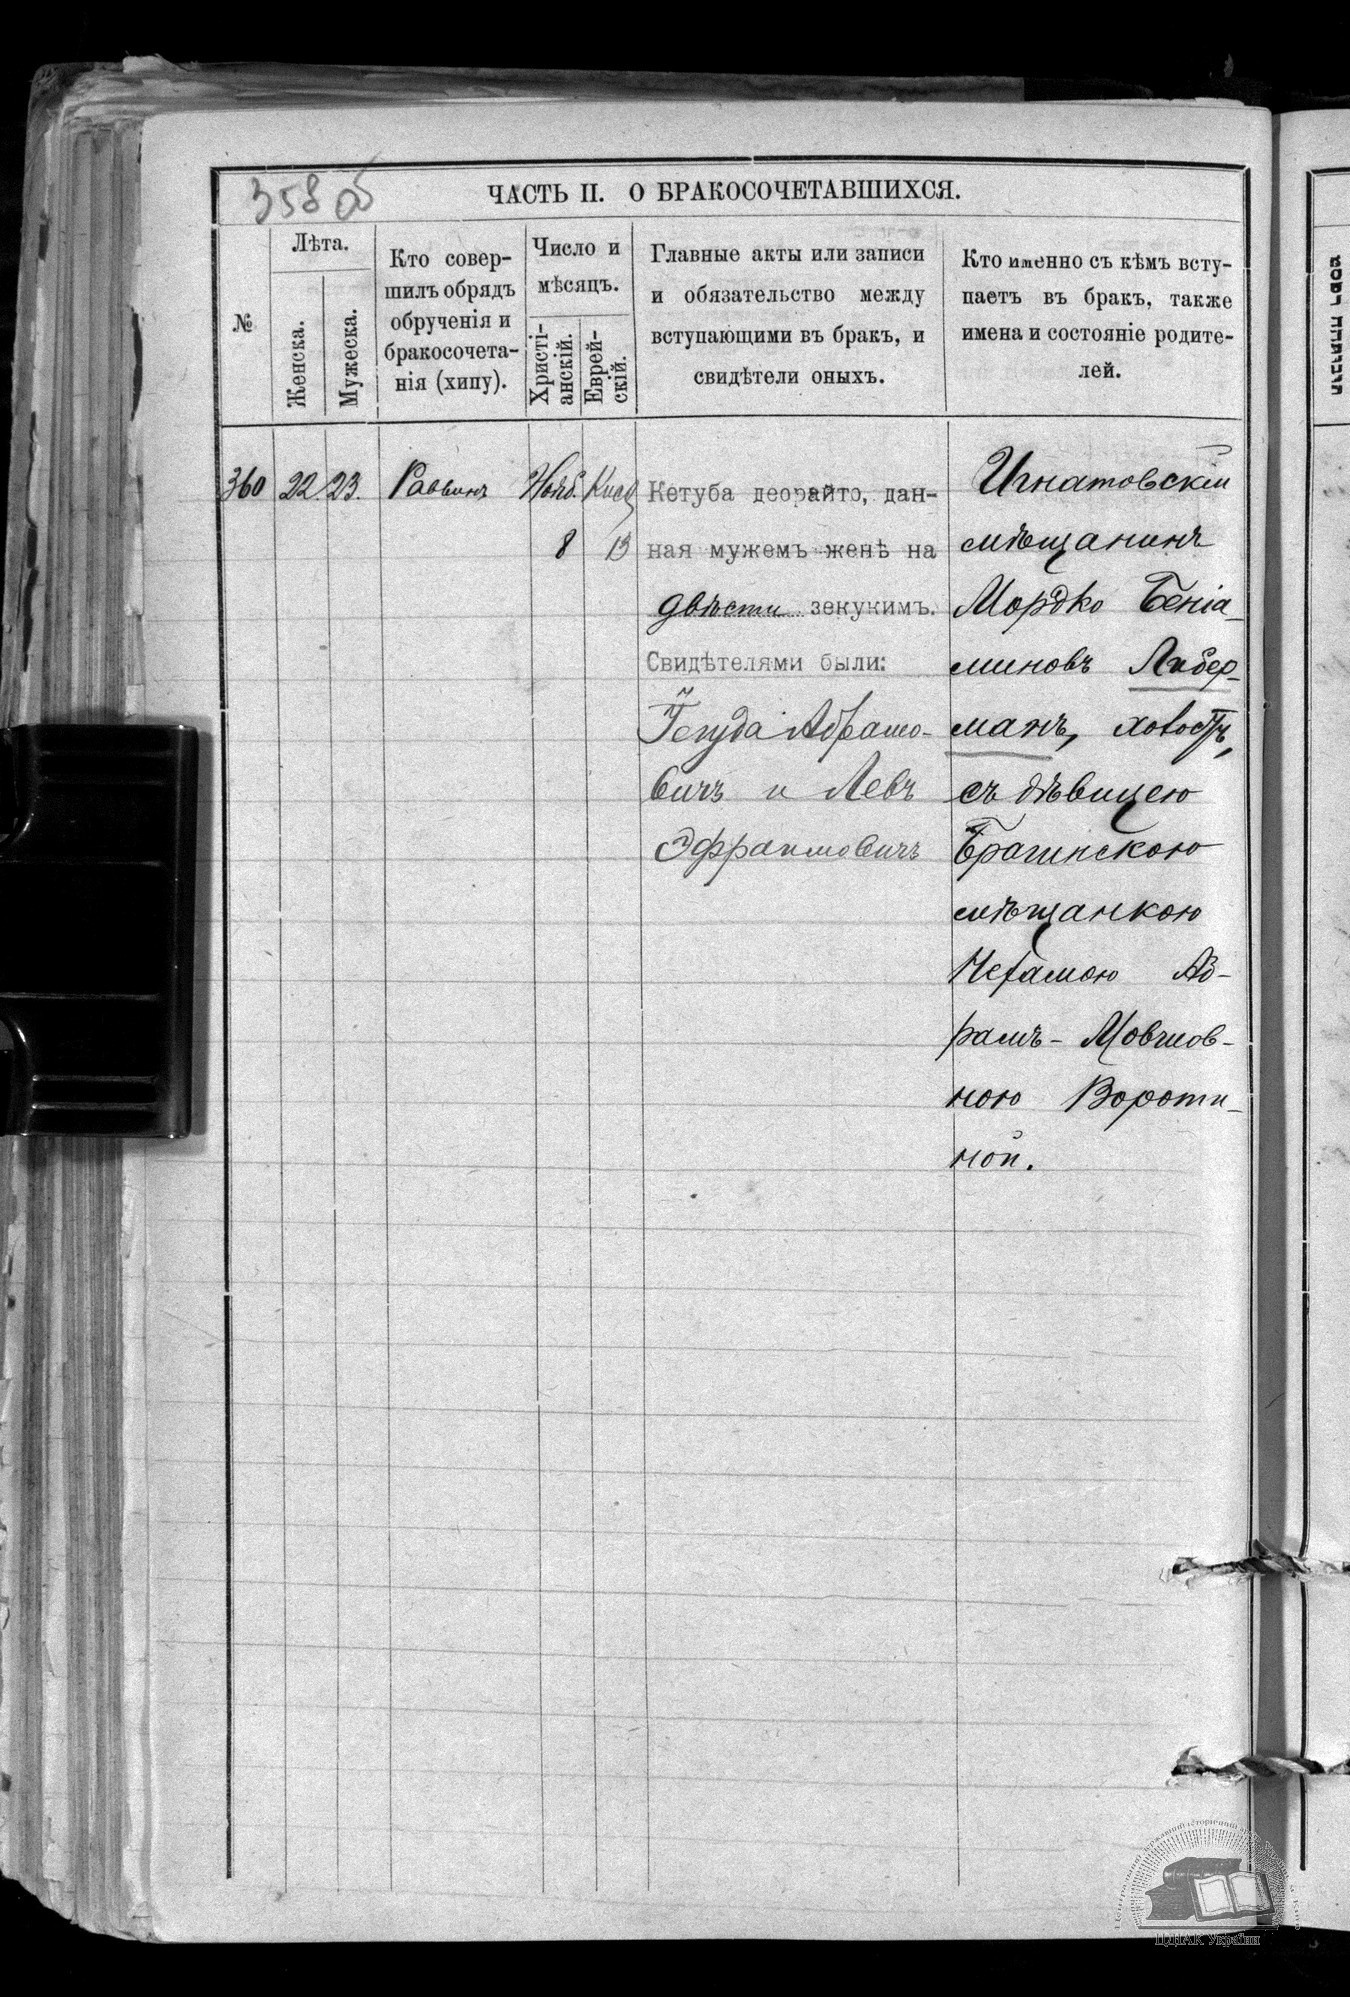 358 об
ЧАСТЬ II. О БРАКОСОЧЕТАВШИХСЯ.
№
Лѣта.
Женска.
Мужеска.
Кто совер-
шилъ обрядъ
обрученія и
бракосочета-
нія (хипу).
Число и
мѣсяцъ.
Христі-
анскій.
Еврей-
скій.
Главные акты или записи
и обязательство между
вступающими въ бракъ, и
свидѣтели оныхъ.
Кто именно съ кѣмъ всту-
паетъ въ бракъ, также
имена и состояніе родите-
лей.
360
22
23.
Раввинъ
Нояб.
8
Кисл
13
Кетуба деорайто, дан-
ная мужемъ женѣ на
двѣсти зекукимъ.
Свидѣтелями были:
Іегуда Абрамо-
вичъ и Левъ
Эфраимовичъ
Игнатовскій
мѣщанинъ
Мордко Беніа-
миновъ Либер-
манъ, холостъ,
съ дѣвицею
Брагинскою
мѣщанкою
Нехамою Аб-
рамъ-Мовшов-
ною Вороти-
ной.
ЦДІАК України